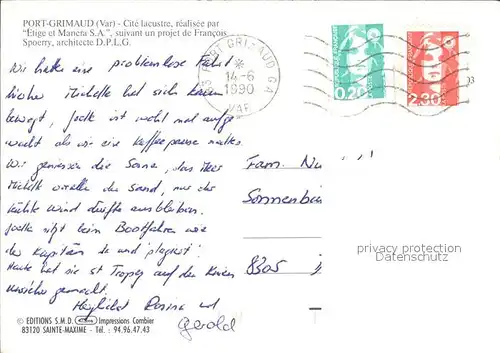 PORT-GRIMAUD (Var) - Cité lacustre, réalisée par
"Etige et Manera S.A.", suivant un projet de François
Spoerry, architecte D.P.L.G.
Wir hatten eine problemlose Fahrt
bisher Michelle hat sich kaum
bewegt, Joelle ist wohl mal aufge-
wacht als wir eine Kaffeepause machten.
Wir geniessen die Sonne, das Meer
Michelle vor allem den Sand, nur der
kühle Wind dürfte ausbleiben.
Joelle sitzt beim Bootfahren wie
der Kapitän da und
Heute hat sie St Tropez auf den Knien
unsicher gemacht.
Herzlichst Rosina und
Gerold
83 PORT GRIMAUD CA
14-6
1990
VAR
0,20
2,30
Fam. Nu
Sonnenbü
8305
privacy protection
Datenschutz
© EDITIONS S.M.D. Impressions Combier
83120 SAINTE-MAXIME - Tél. : 94.96.47.43